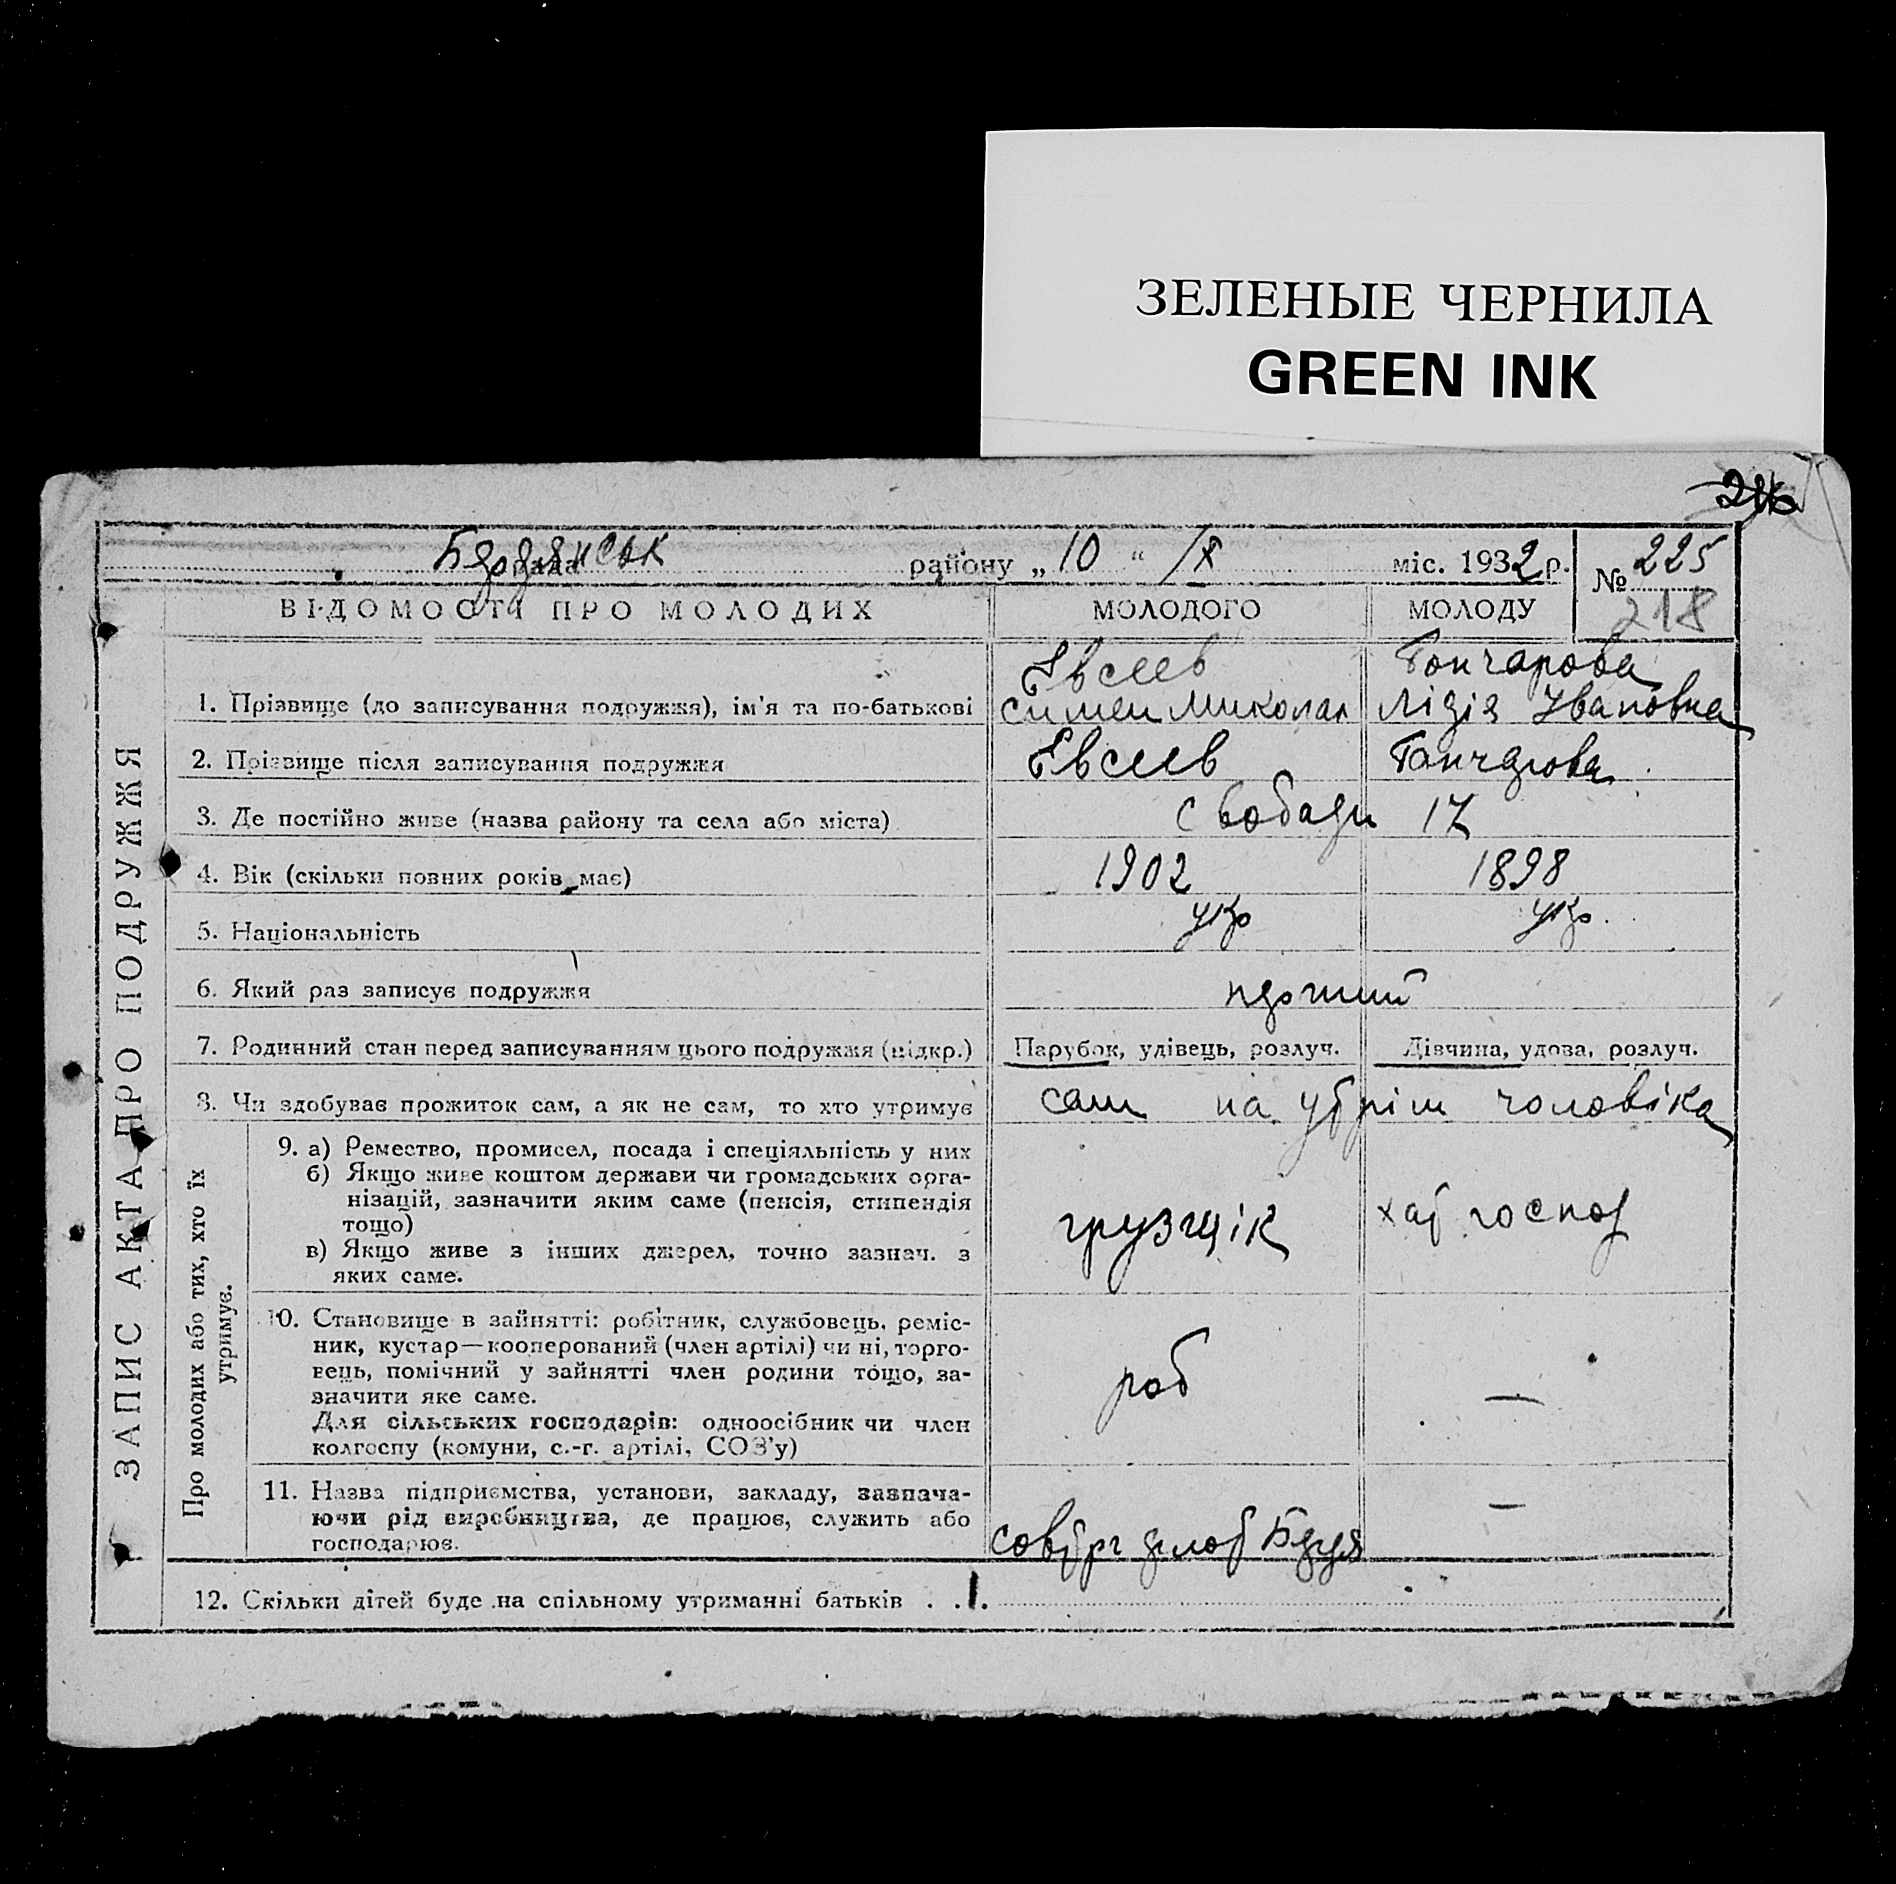 ЗЕЛЕНЫЕ ЧЕРНИЛА
GREEN INK
Бердянськ рада району „10“ /X міс. 1932 р. № 225
218
ВІДОМОСТІ ПРО МОЛОДИХ МОЛОДОГО МОЛОДУ
ЗАПИС АКТА ПРО ПОДРУЖЖЯ
Евсеев Гончарова
1. Прізвище (до записування подружжя), ім'я та по-батькові Симен Микола Лідія Ивановна
2. Прізвище після записування подружжя Евсеев Гончарова
3. Де постійно живе (назва району та села або міста) Свободи 17
4. Вік (скільки повних років має) 1902 1898
5. Національність укр укр.
6. Який раз записує подружжя
7. Родинний стан перед записуванням цього подружжя (підкр.) Парубок, удівець, розлуч. Дівчина, удова, розлуч.
8. Чи здобуває прожиток сам, а як не сам, то хто утримує сам на утрім чоловіка
Про молодих або тих, хто їх утримує.
9. а) Ремество, промисел, посада і спеціяльність у них
б) Якщо живе коштом держави чи громадських орга-
нізацій, зазначити яким саме (пенсія, стипендія
тощо) грузчік хат господ
в) Якщо живе з інших джерел, точно зазнач. з
яких саме.
10. Становище в зайнятті: робітник, службовець, реміс-
ник, кустар—кооперований (член артілі) чи ні, торго-
вець, помічний у зайнятті член родини тощо, за-
значити яке саме. роб —
Для сільських господарів: одноосібник чи член
колгоспу (комуни, с.-г. артілі, СОЗ'у)
11. Назва підприємства, установи, закладу, зазнача-
ючи рід виробництва, де працює, служить або —
господарює.
12. Скільки дітей буде на спільному утриманні батьків . . 1.